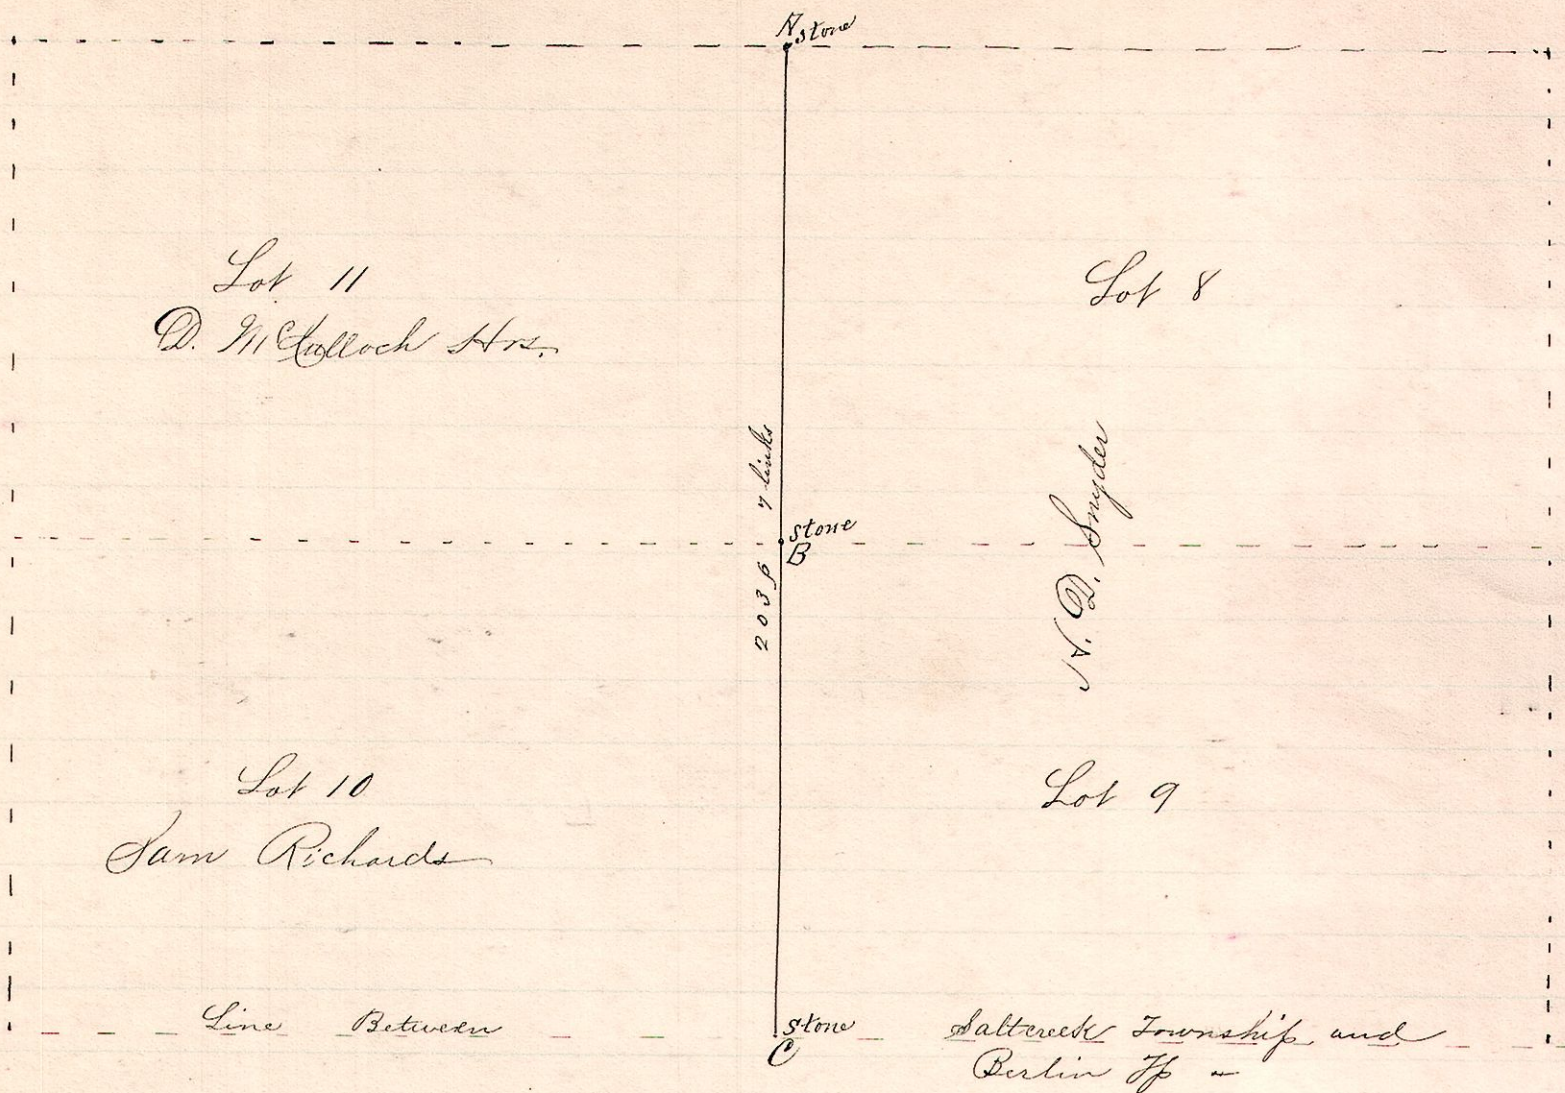 A stone
Lot 11
D. McCulloch Hrs.
Lot 8
203 p 7 links
stone
B
H. D. Snyder
Lot 10
Sam Richards
Lot 9
Line Between
stone
C
Saltcreek Township and
Berlin Tp